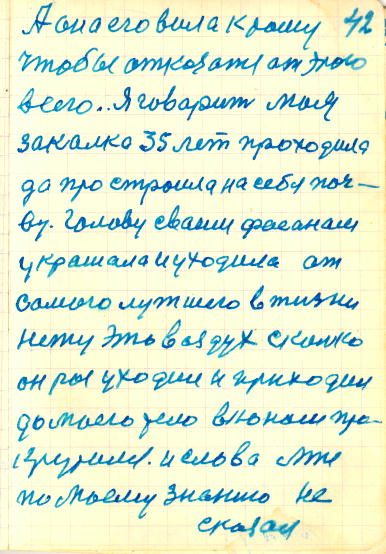 А она его вила к рому 42
чтобы отказате от этого
всего.. Я говарит моля
закалка 35 лет проходила
да про строила на себя поч-
ву. Голову своим фасанам
украшала и уходила от
самого лутшего в жизни
нету Это воздух сколко
он рас уходил и приходил
до моего тело в юном
и слова мне
по моему знанию не
сказал